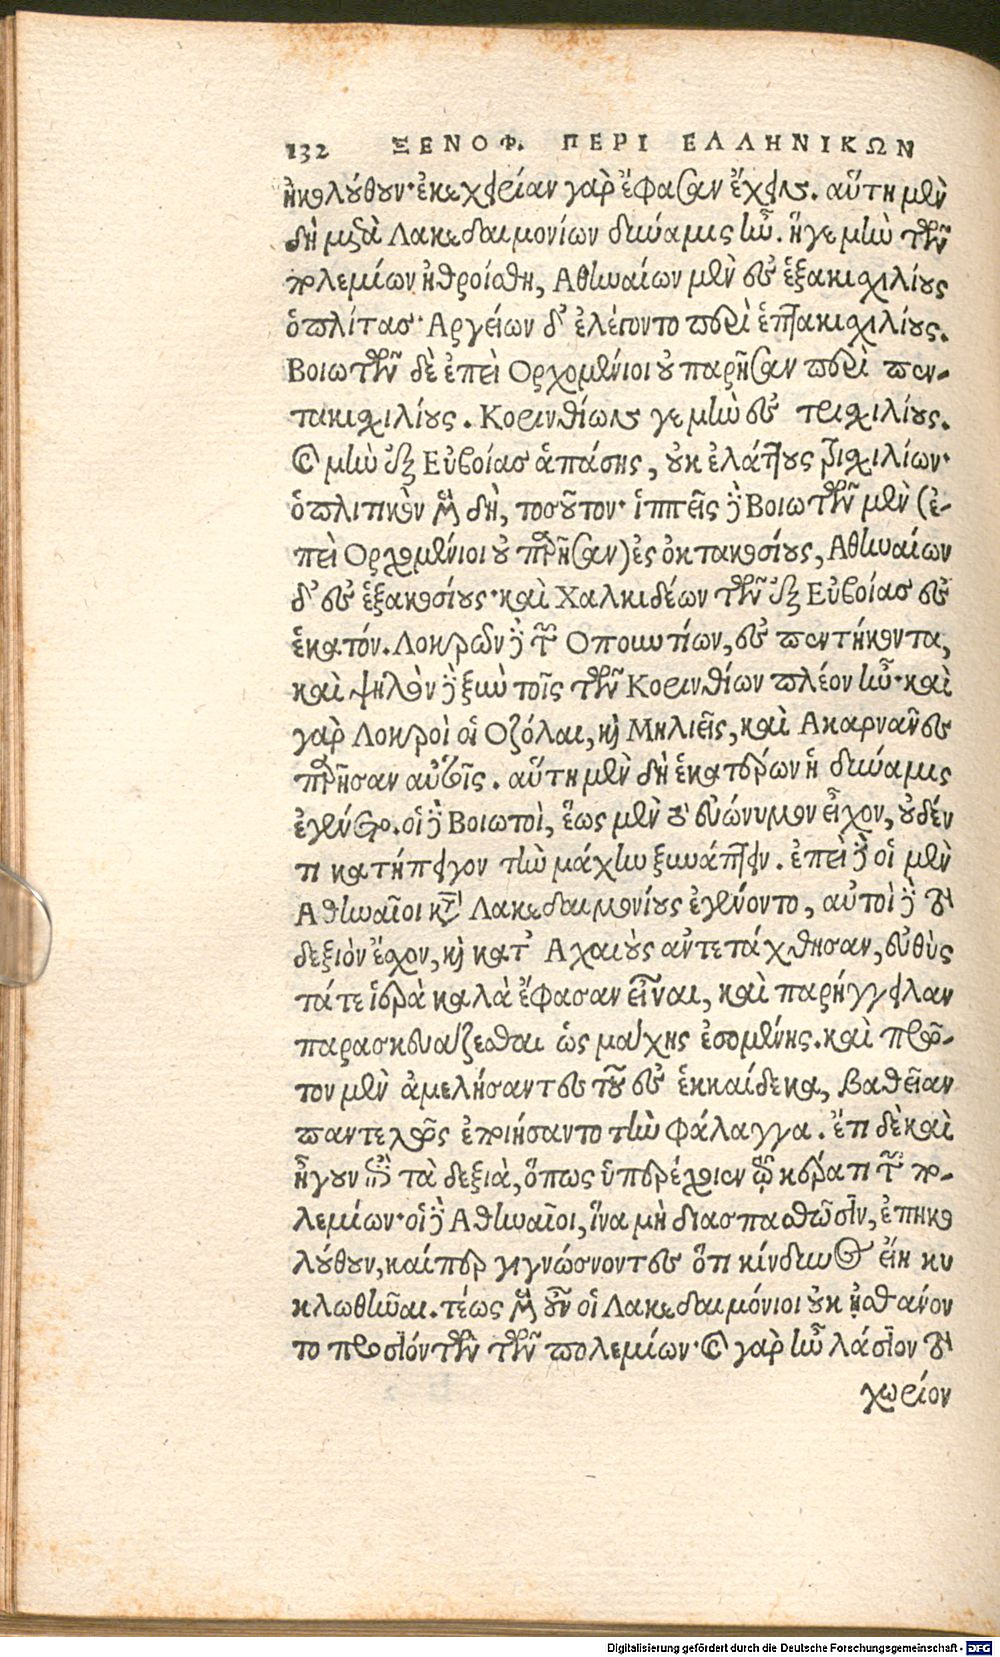 132 ΞΕΝΟΦ. ΠΕΡΙ ΕΛΛΗΝΙΚΩΝ
ἠκολούθουν· ἐκεχειρίαν γὰρ ἔφασαν ἔχειν. αὕτη μὲν
δὴ μετὰ Λακεδαιμονίων δύναμις ἦν. ἥ γε μὴν τῶν
πολεμίων ἠθροίσθη, Ἀθηναίων μὲν εἰς ἑξακισχιλίους
ὁπλίτας· Ἀργείων δ' ἐλέγοντο περὶ ἑπτακισχιλίους.
Βοιωτῶν δὲ ἐπεὶ Ὀρχομένιοι οὐ παρῆσαν περὶ πεν-
τακισχιλίους. Κορινθίων γε μὴν εἰς τρισχιλίους.
καὶ μὴν ἐξ Εὐβοίας ἁπάσης, οὐκ ἐλάττους τρισχιλίων·
ὁπλιτικὸν μὲν δὴ, τοσοῦτον· ἱππεῖς δὲ Βοιωτῶν μὲν (ἐ-
πεὶ Ὀρχομένιοι οὐ παρῆσαν) ἐς ὀκτακοσίους, Ἀθηναίων
δ' εἰς ἑξακοσίους· καὶ Χαλκιδέων τῶν ἐξ Εὐβοίας εἰς
ἑκατόν. Λοκρῶν δὲ τῶν Ὀπουντίων, εἰς πεντήκοντα,
καὶ ψιλὸν δὲ ξὺν τοῖς τῶν Κορινθίων πλέον ἦν· καὶ
γὰρ Λοκροὶ οἱ Ὀζόλαι, καὶ Μηλιεῖς, καὶ Ἀκαρνᾶνες
παρῆσαν αὐτοῖς. αὕτη μὲν δὴ ἑκατέρων ἡ δύναμις
ἐγένετο. οἱ δὲ Βοιωτοὶ, ἕως μὲν τὸ εὐώνυμον εἶχον, οὐδέν
τι κατήπειγον τὴν μάχην ξυνάπτειν. ἐπεὶ δὲ οἱ μὲν
Ἀθηναῖοι κατὰ Λακεδαιμονίους ἐγένοντο, αὐτοὶ δὲ τὸ
δεξιὸν ἔσχον, καὶ κατ' Ἀχαιοὺς ἀντετάχθησαν, εὐθὺς
τά τε ἱερὰ καλὰ ἔφασαν εἶναι, καὶ παρήγγειλαν
παρασκευάζεσθαι ὡς μάχης ἐσομένης. καὶ πρῶ-
τον μὲν ἀμελήσαντες τοῦ εἰς ἑκκαίδεκα, βαθεῖαν
παντελῶς ἐποιήσαντο τὴν φάλαγγα. ἔτι δὲ καὶ
ἦγον ἐπὶ τὰ δεξιὰ, ὅπως ὑπερέχοιεν τῷ κέρατι τῶν πο-
λεμίων· οἱ δὲ Ἀθηναῖοι, ἵνα μὴ διασπασθῶσιν, ἐπηκο
λούθουν, καίπερ γιγνώσκοντες ὅτι κίνδυνος εἴη κυ
κλωθῆναι. τέως μὲν οὖν οἱ Λακεδαιμόνιοι οὐκ ᾐσθάνον
το προσιόντων τῶν πολεμίων· καὶ γὰρ ἦν λάσιον τὸ
χωρίον
Digitalisierung gefördert durch die Deutsche Forschungsgemeinschaft - DFG